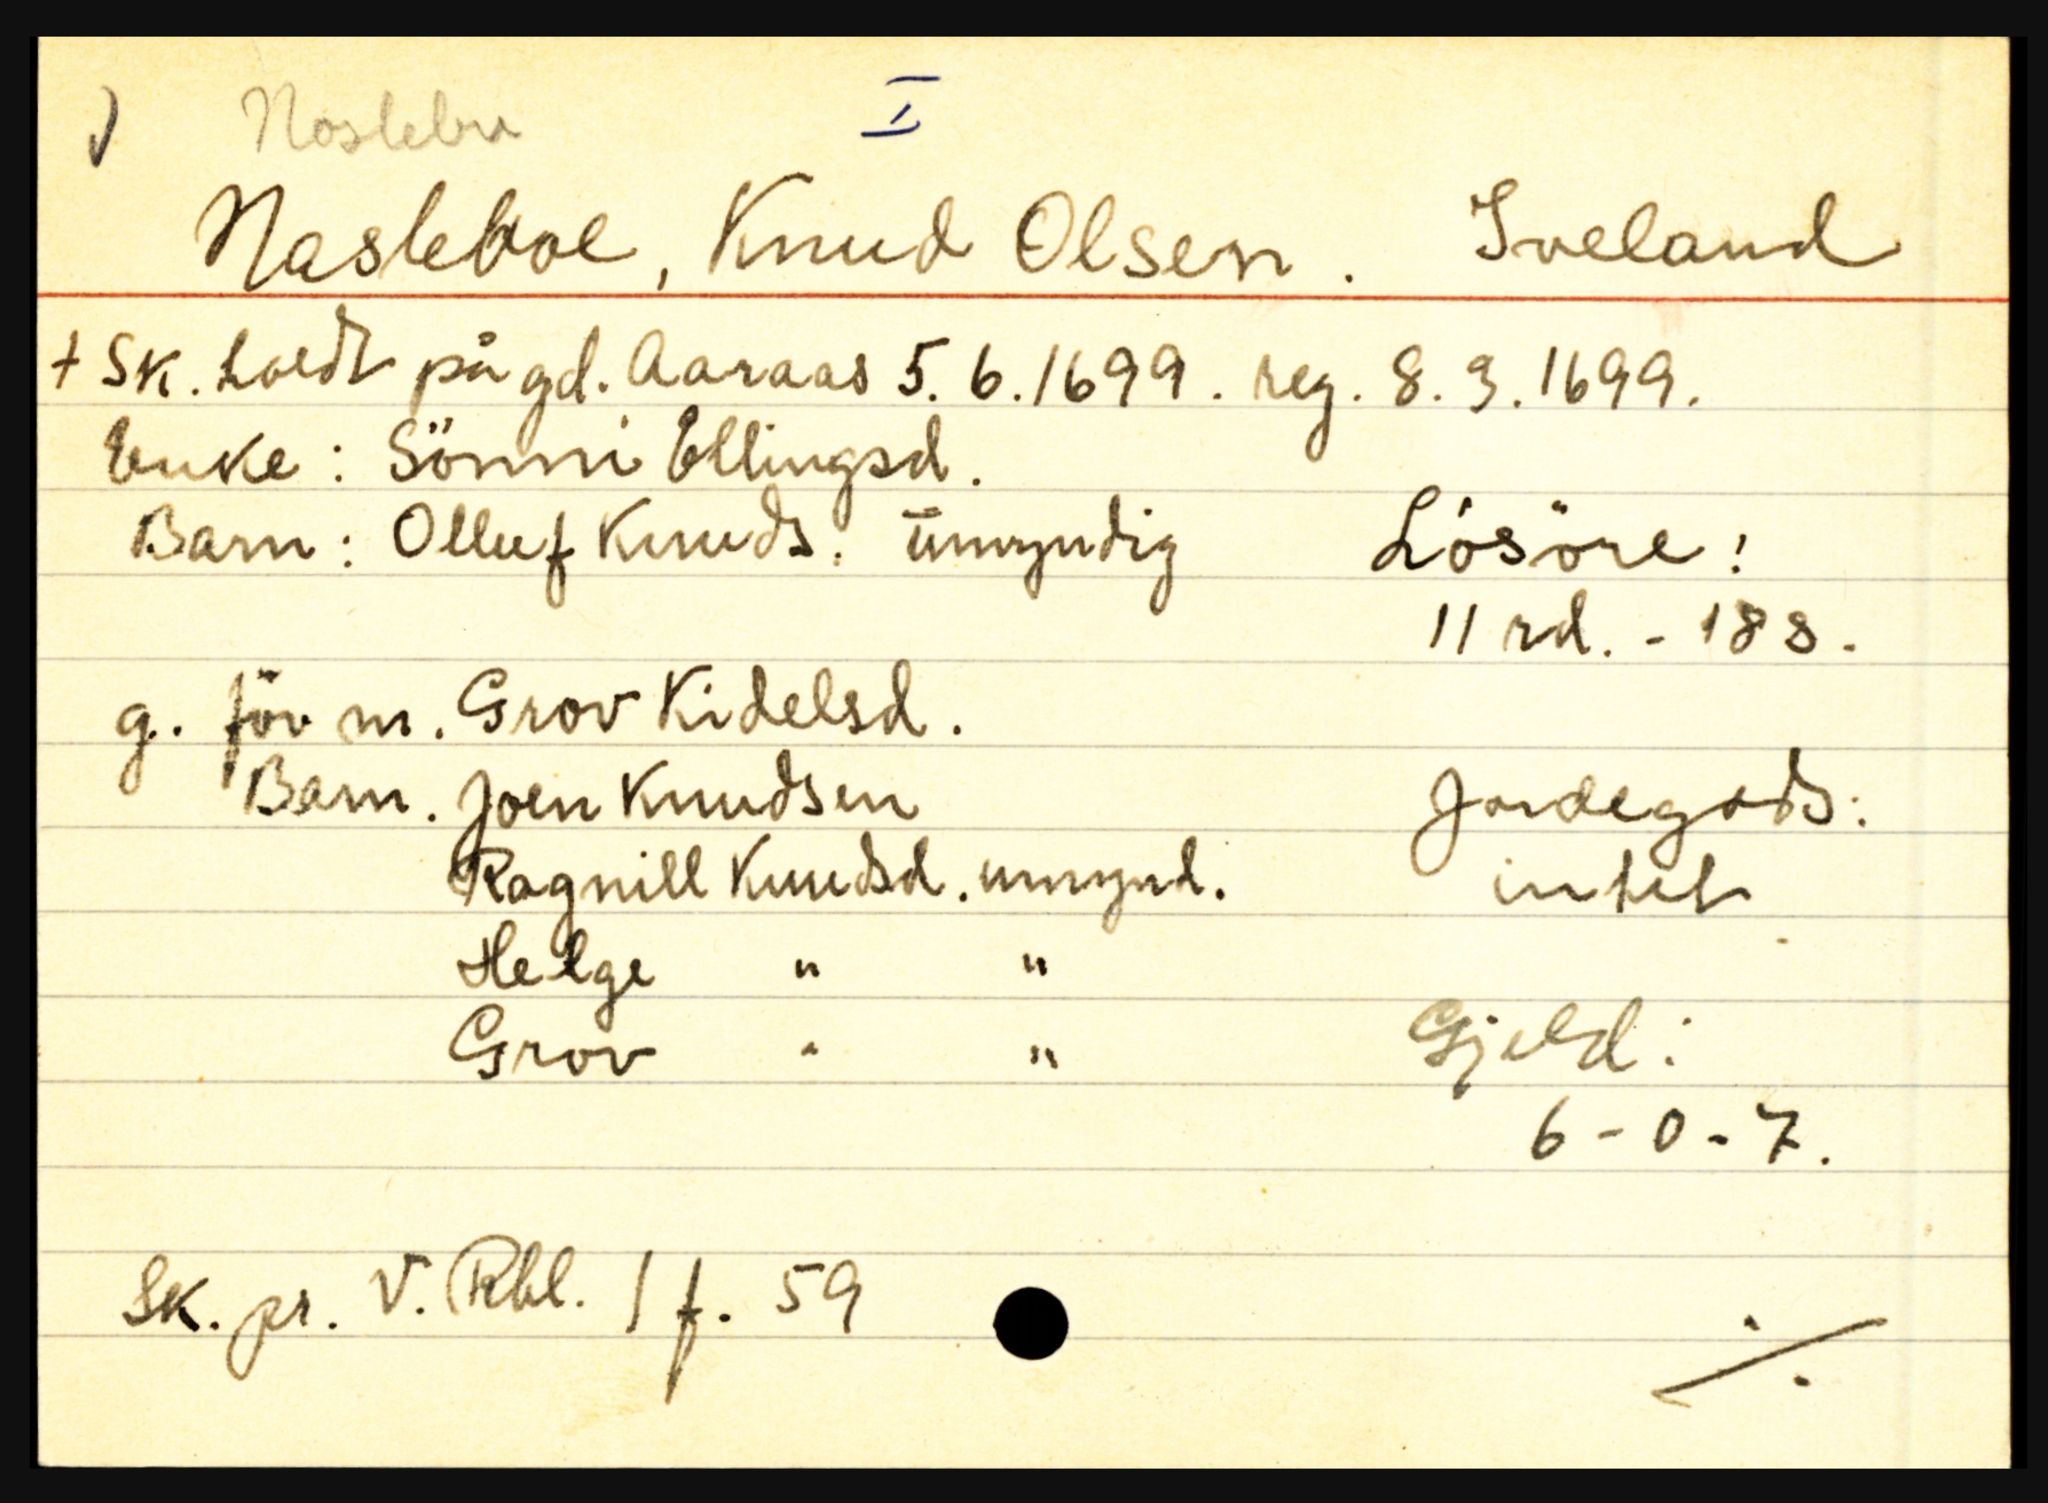 Noslebu I
Nasleboe, Knud Olsen. Iveland
+ Sk. holdt på gd. Aaraas 5. 6. 1699. reg. 8. 3. 1699.
Enke: Sönni Ellingsd.
Barn: Olluf Knuds. umyndig Lösöre:
11 rd. - 18 s.
g. för m. Grov Kidelsd.
Barn. Joen Knudsen Jordegods:
Ragnill Knudsd. umynd. intet
Helge " "
Grov " " Gjeld:
6 - 0 - 7.
Sk. pr. V. Rbl. 1 f. 59